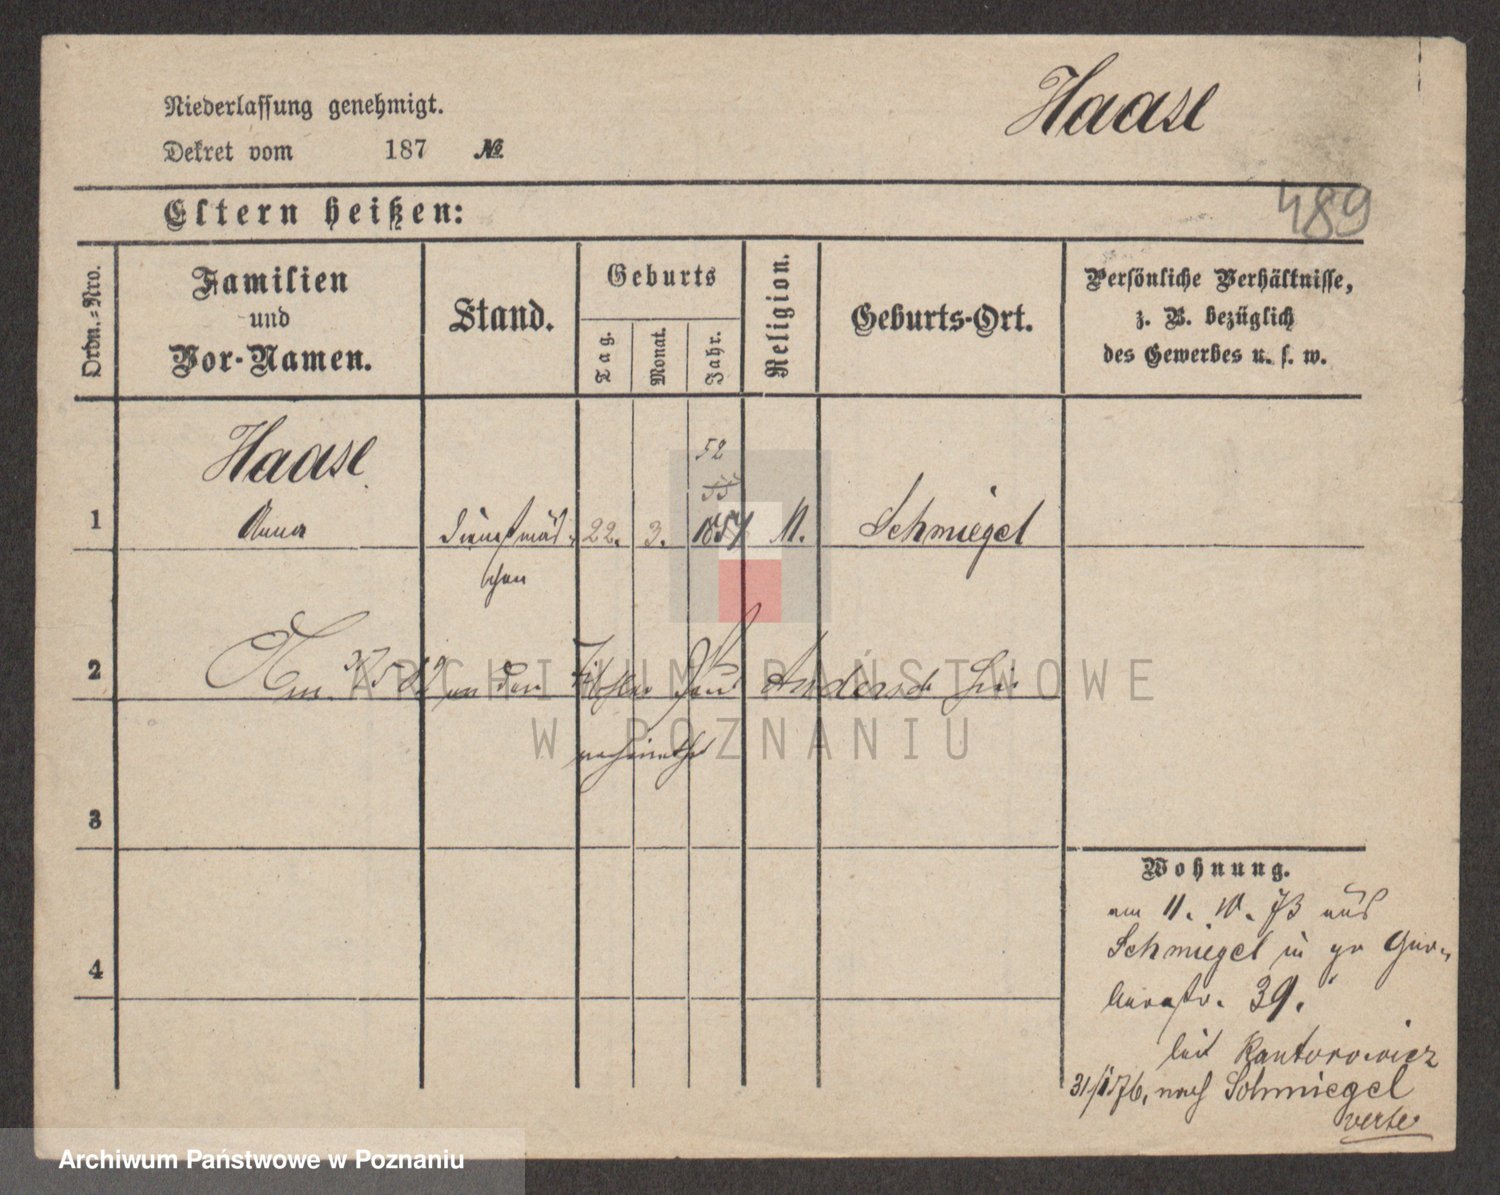 Haase
Niederlassung genehmigt.
Dekret vom 187 No
489
Eltern heißen:
Ordn.-Nro.
Familien
und
Vor-Namen.
Stand.
Geburts
Tag.
Monat.
Jahr.
Religion.
Geburts-Ort.
Persönliche Verhältnisse,
z. B. bezüglich
des Gewerbes u. s. w.
52
55
Haase
1 Anna Dienstmäd- 22. 3. 1854 Schmiegel
chen
2 Am an den Paul Andersch hier
verheirathet
3
Wohnung.
am 11. 73 aus
Schmiegel in gr Ger-
berstr. 39.
bei Kantorowicz
4
nach Schmiegel
verte
ARCHIWUM PAŃSTWOWE
W POZNANIU
Archiwum Państwowe w Poznaniu